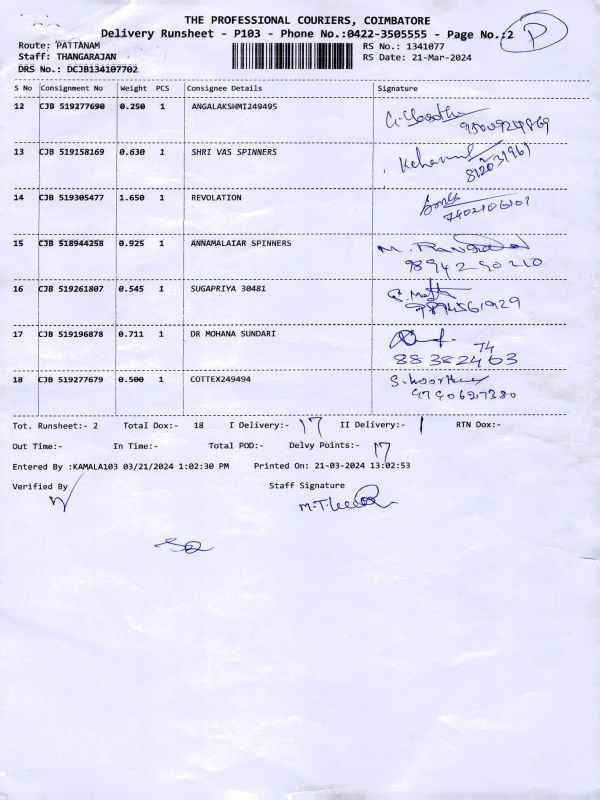 THE PROFESSIONAL COURIERS, COIMBATORE
Delivery Runsheet - P103 - Phone No.:0422-3505555 - Page No.:2 P
Route: PATTANAM RS No.: 1341077
Staff: THANGARAJAN RS Date: 21-Mar-2024
DRS No.: DCJB134107702
S No Consignment No Weight PCS Consignee Details Signature
12 CJB 519277690 0.250 1 ANGALAKSHMI249495
13 CJB 519158169 0.630 1 SHRI VAS SPINNERS
14 CJB 519305477 1.650 1 REVOLATION
15 CJB 518944258 0.925 1 ANNAMALAIAR SPINNERS
9894290210
16 CJB 519261807 0.545 1 SUGAPRIYA 30481
9894561929
17 CJB 519196878 0.711 1 DR MOHANA SUNDARI
74
18 CJB 519277679 0.500 1 COTTEX249494
9790627380
Tot. Runsheet:- 2 Total Dox:- 18 I Delivery:- 17 II Delivery:- 1 RTN Dox:-
Out Time:- In Time:- Total POD:- Delvy Points:- 17
Entered By :KAMALA103 03/21/2024 1:02:30 PM Printed On: 21-03-2024 13:02:53
Verified By Staff Signature